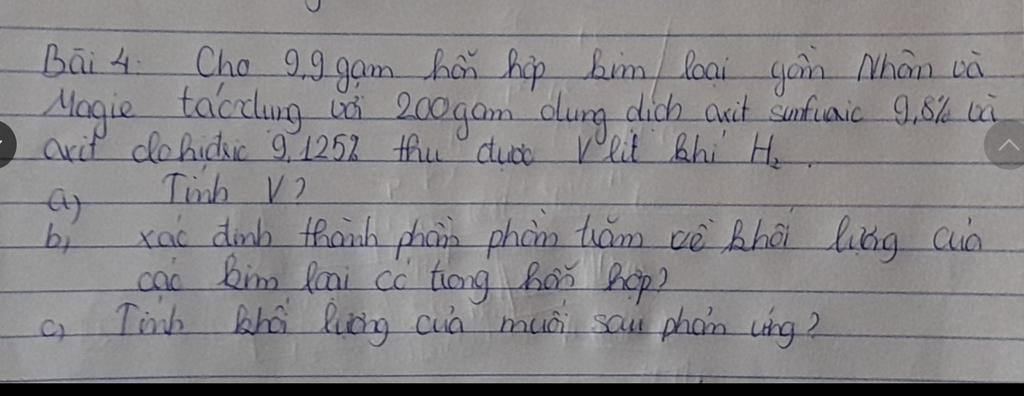 Bài 4: Cho 9,9 gam hỗn hợp kim loại gồm Nhôm và
Magie tác dụng với 200gam dung dịch axit sunfuaic 9,8% và
axit clohidric 9,125% thu được V lít khí H₂.
a) Tính V?
b, xác định thành phần phần trăm về khối lượng của
các kim loại có trong hỗn hợp?
c, Tính khối lượng của muối sau phản ứng?